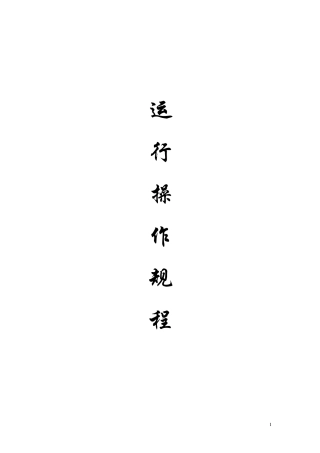 运
行
操
作
规
程
1